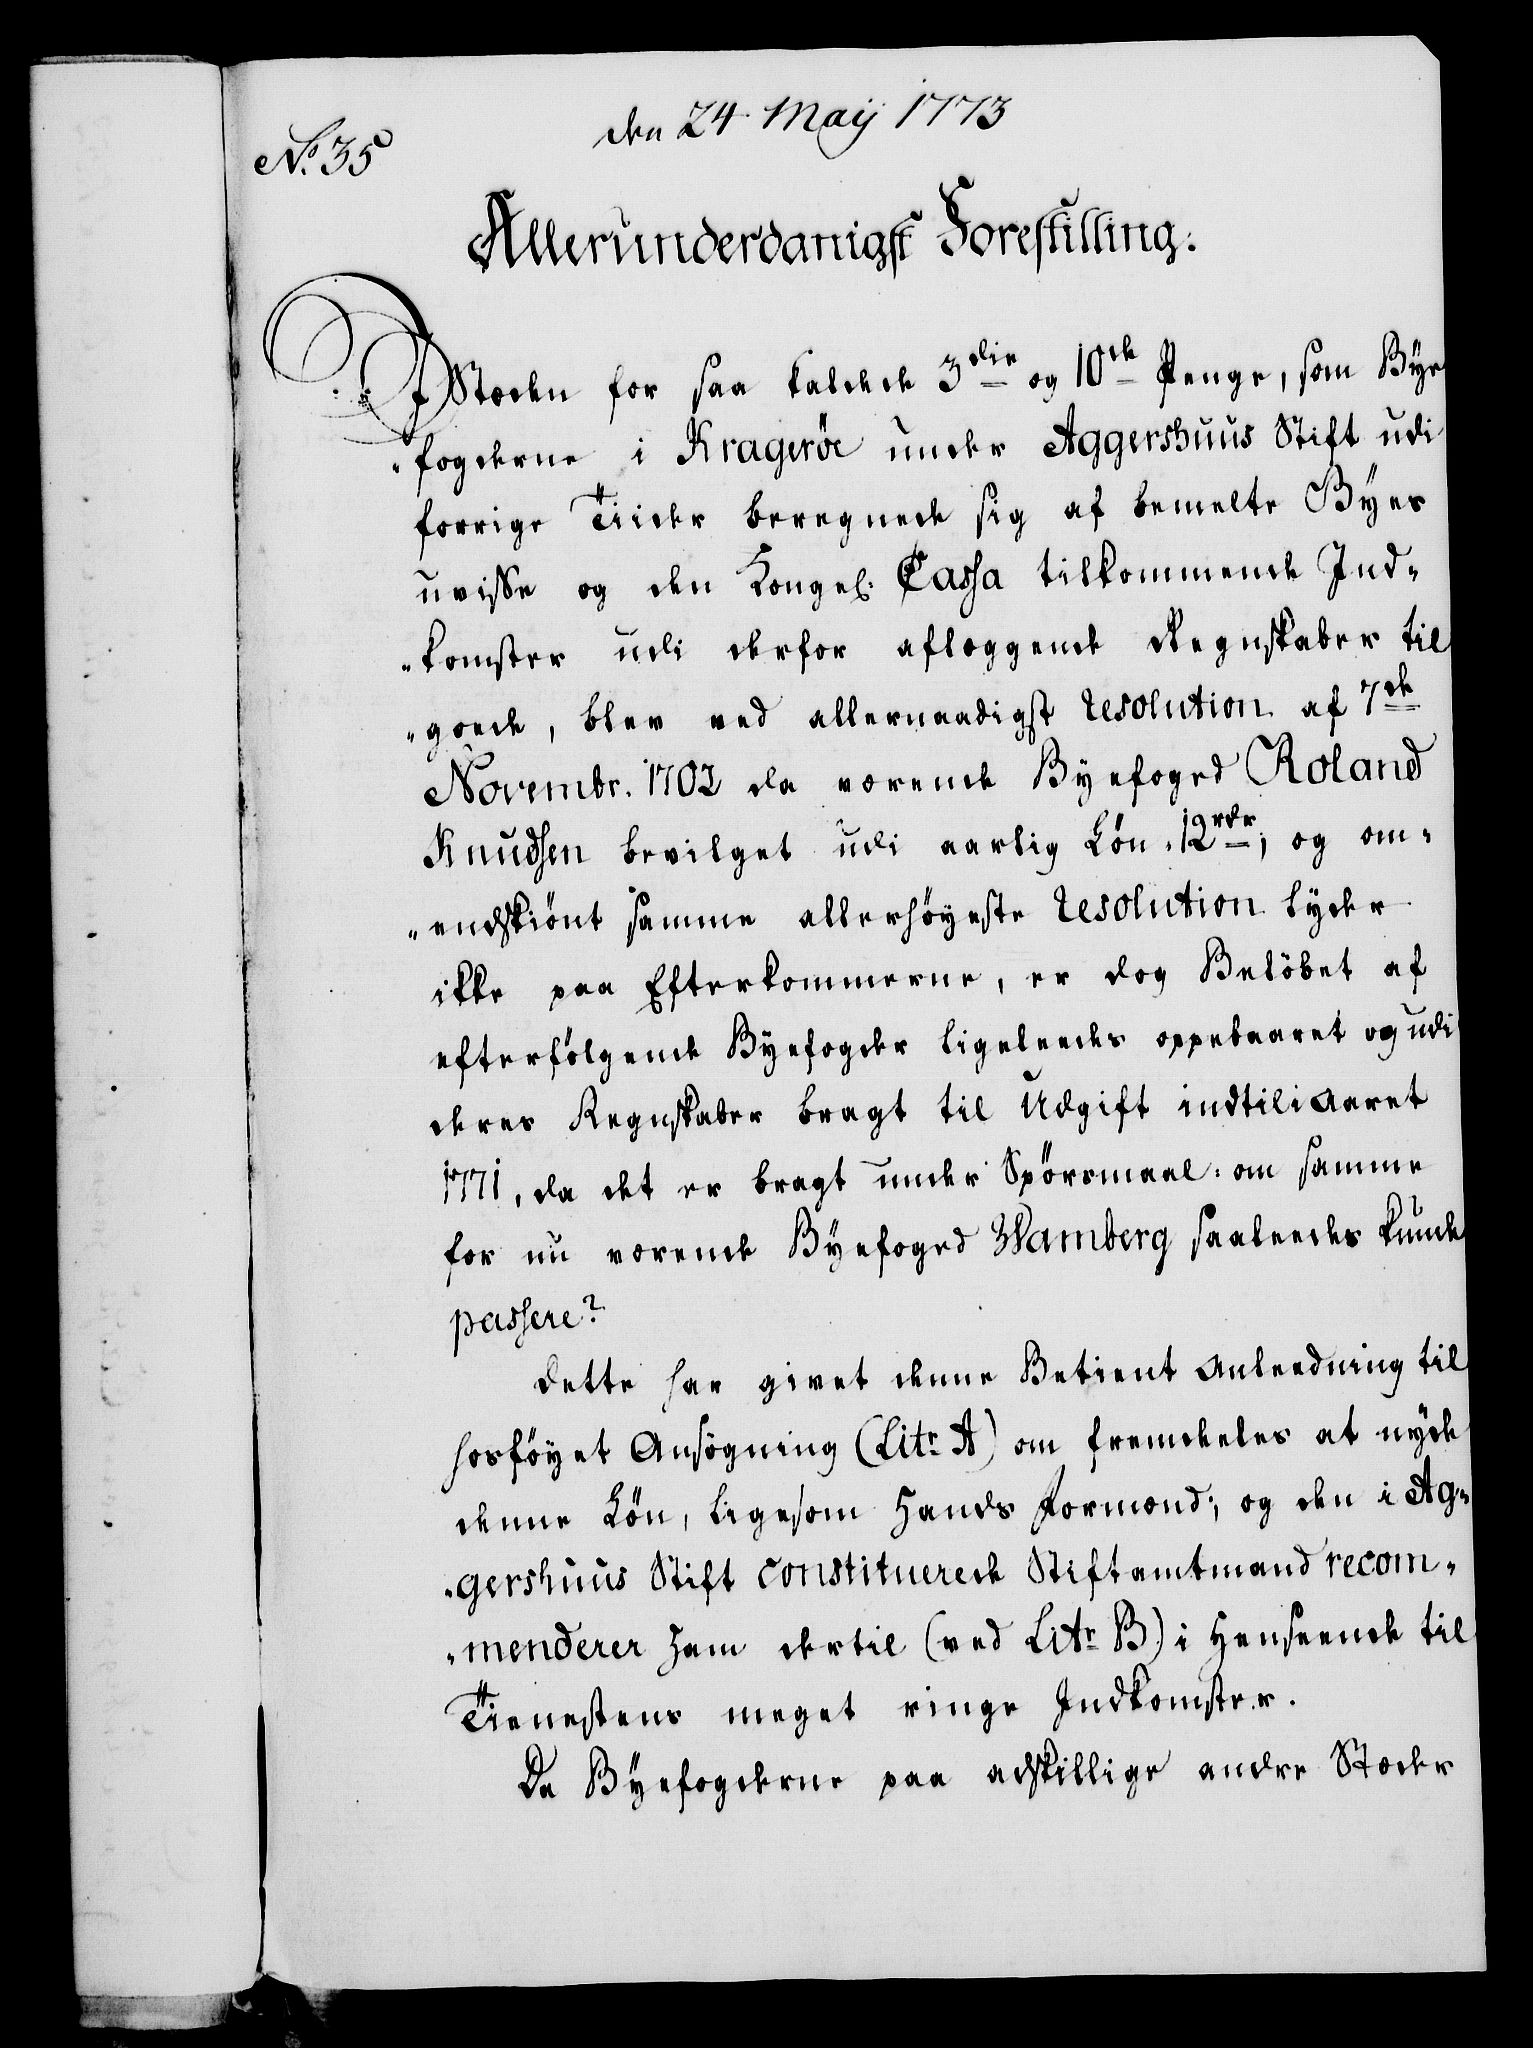 No. 35
den 24 Maij 1773
Allerunderdanigst Forestilling.
I Stæden for saa kaldede 3die og 10de Penge, som Bye
-fogderne i Krageröe under Aggershuus Stift udi
forrige Tiider beregnede sig af bemelte Byes
uvisse og den Kongel. Cassa tilkommende Ind-
-komster udi derfor aflæggende Regnskaber til
-goede, blev ved allernaadigst resolution af 7de
Novembr. 1702 da værende Byefoged Roland
Knudsen bevilget udi aarlig Lön 12rdr; og om-
-endskiönt samme allerhöyeste resolution lyder
ikke paa Efterkommerne, er dog Belöbet af
efterfölgende Byefogder ligeleedes oppebaaret og udi
deres Regnskaber bragt til Udgift indtil i Aaret
1771, da det er bragt under Spörsmaal: om samme
for nu værende Byefoged Wamberg saaleedes kunde
passere?
Dette har givet denne Betient Anleedning til
hosföyet Ansögning (Litr A) om fremdeeles at nyde
denne Lön, ligesom Hands Formænd; og den i Ag-
-gershuus Stift constituerede Stiftamtmand recom-
-menderer ham dertil (ved Litr B.) i Henseende til
Tienestens meget ringe Indkomster.
Da Byefogderne paa adskillige andre Stæder